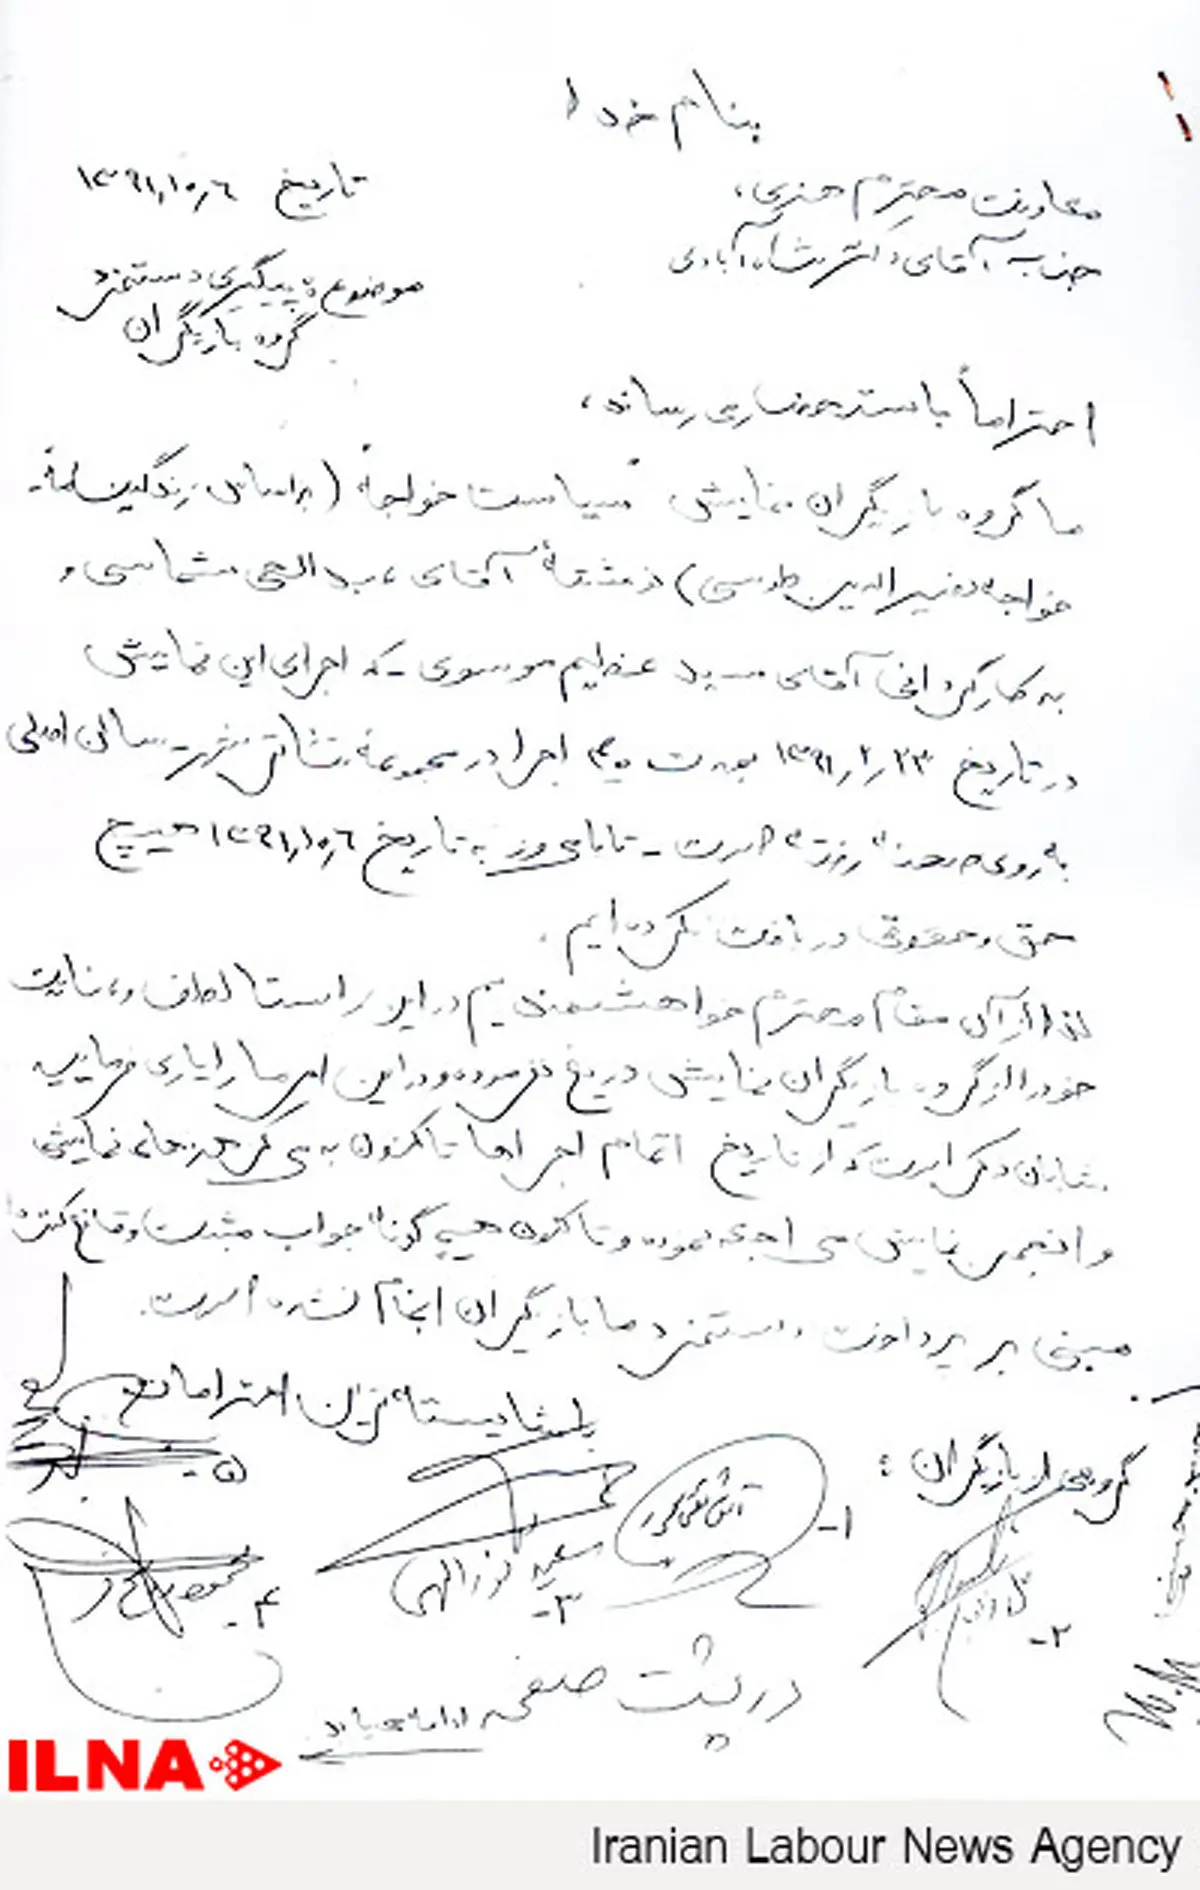 بنام خدا
تاریخ ۱۳۹۱,۱۰,۶
معاونت محترم هنری،
جناب آقای دکتر شاه‌آبادی
موضوع: پیگیری دستمزد
گروه بازیگران
احتراماً باستحضار می رساند،
ما گروه بازیگران نمایش "سیاست خواجه" (براساس زندگینامهٔ
خواجه نصیرالدین طوسی) نوشتهٔ آقای عبدالحی شماسی و
به کارگردانی آقای سید عظیم موسوی - که اجرای این نمایش
در تاریخ ۱۳۹۱,۲,۲۳ بمدت ۴۰ اجرا در مجموعهٔ تئاتر شهر - سالن اصلی
به روی صحنه رفته است - تا بامروز به تاریخ ۱۳۹۱,۱۰,۶ هیچ
حق و حقوقی دریافت نکرده ایم.
لذا از آن مقام محترم خواهشمندیم در این راستا لطف و عنایت
خود را از گروه بازیگران نمایش دریغ نفرموده و در این امر ما را یاری فرمایید
شایان ذکر است که از تاریخ اتمام اجراها تا کنون به مرکز هنرهای نمایشی
و انجمن نمایش مراجعه نموده و تاکنون هیچ گونه جواب مثبت و قانع کننده
مبنی بر پرداخت دستمزد ما بازیگران انجام نشده است.
با شایسته ترین احترامات
گروهی از بازیگران:
۱-
۲-
۳- سعید نورالهی
۴-
۵-
در پشت صفحه ادامه دارد
ILNA
Iranian Labour News Agency